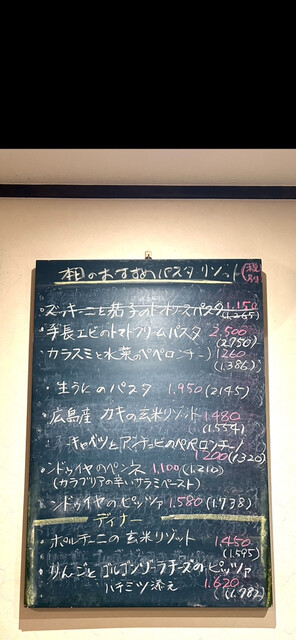 本日のおすすめパスタ リゾット 税別
・ズッキーニと茄子のトマトソースパスタ 1.150
(1.265)
・手長エビのトマトクリームパスタ 2,500
(2750)
・カラスミと水菜のペペロンチーノ 1260
(1.386)
生うにのパスタ 1.950 (2145)
・広島産 カキの玄米リゾット 1.480
(1.554)
キャベツとアンチョビのペペロンチーノ
1200 (1320)
・ンドゥイヤのペンネ 1,100 (1.210)
(カラブリアの辛いサラミペースト)
ンドゥイヤのピッツァ 1.580 (1.738)
ディナー
・ポルチーニの玄米リゾット 1.450
(1.595)
・りんごとゴルゴンゾーラチーズのピッツァ
ハチミツ添え 1.620
(1.782)